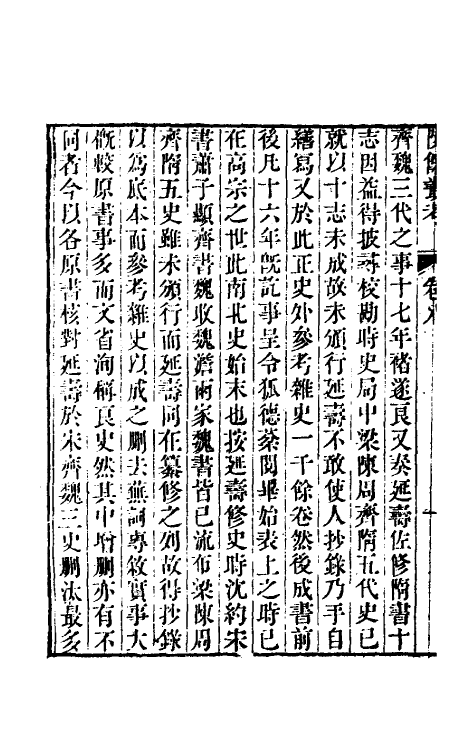 陔餘叢考 卷八
齊魏三代之事十七年褚遂良又奏延壽佐修隋書十
志因益得披尋校勘時史局中梁陳周齊隋五代史已
就以十志未成故未頒行延壽不敢使人抄錄乃手自
繕寫又於此正史外參考雜史一千餘卷然後成書前
後凡十六年旣訖事呈令狐德棻閱畢始表上之時已
在高宗之世此南北史始末也按延壽修史時沈約宋
書蕭子顯齊書魏收魏澹兩家魏書皆已流布梁陳周
齊隋五史雖未頒行而延壽同在纂修之列故得抄錄
以爲底本而參考雜史以成之刪去蕪詞專敘實事大
槪較原書事多而文省洵稱良史然其中增刪亦有不
同者今以各原書核對延壽於宋齊魏三史刪汰最多